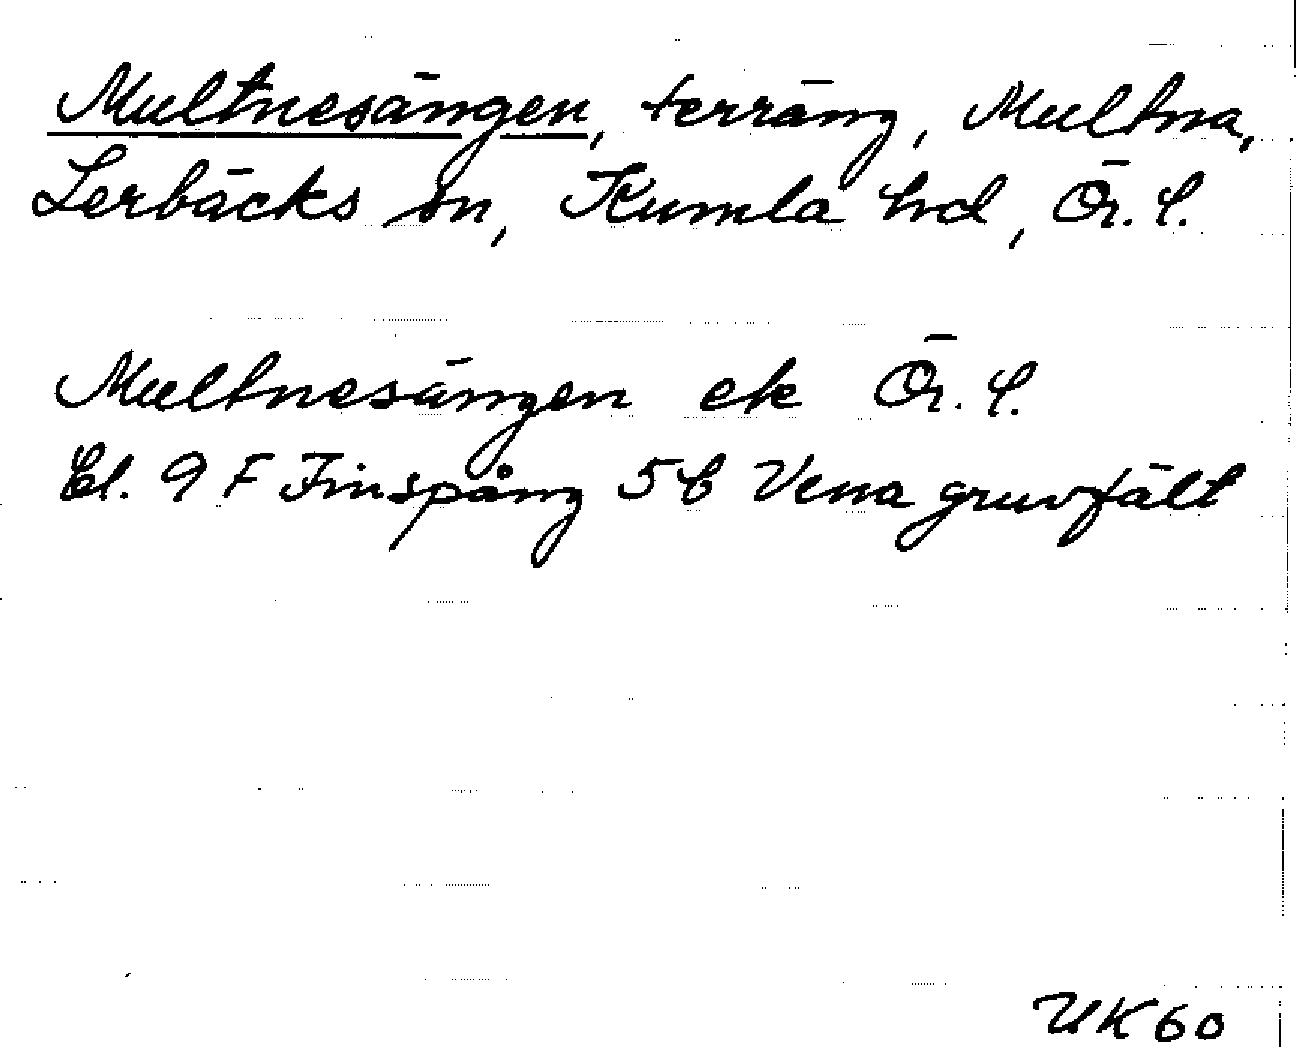 Multnesängen, terräng, Multna,
Lerbäcks sn, Kumla hd, Ör. l.
Multnesängen ek Ör. l.
Bl. 9 F Finspång 5 b Vena gruvfält
UK 60